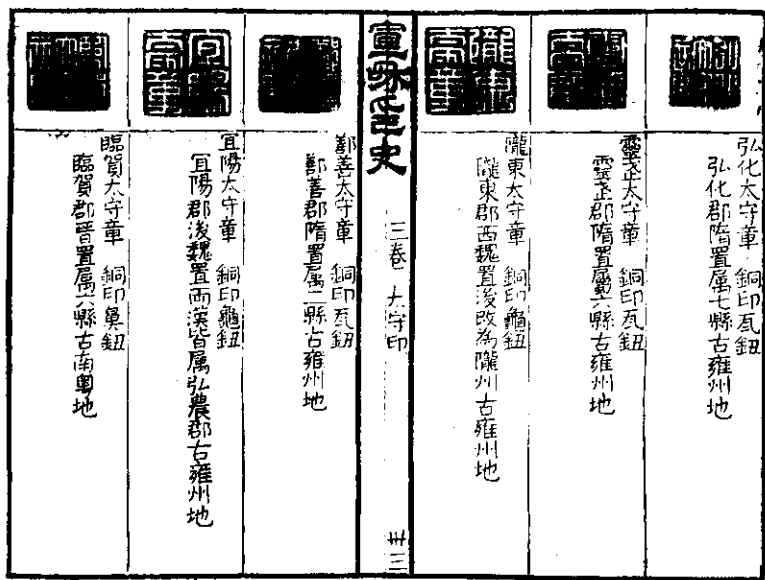 弘化太守章　銅印瓦鈕
弘化郡隋置属七縣古雍州地
靈武太守章　銅印瓦鈕
靈武郡隋置属六縣古雍州地
隴東太守章　銅印龜鈕
隴東郡西魏置後改為隴州古雍州地
三卷　太守印
卅三
鄯善太守章　銅印瓦鈕
鄯善郡隋置属二縣古雍州地
宜陽太守章　銅印龜鈕
宜陽郡後魏置兩漢皆属弘農郡古雍州地
臨賀太守章　銅印鼻鈕
臨賀郡晉置属六縣古南粵地